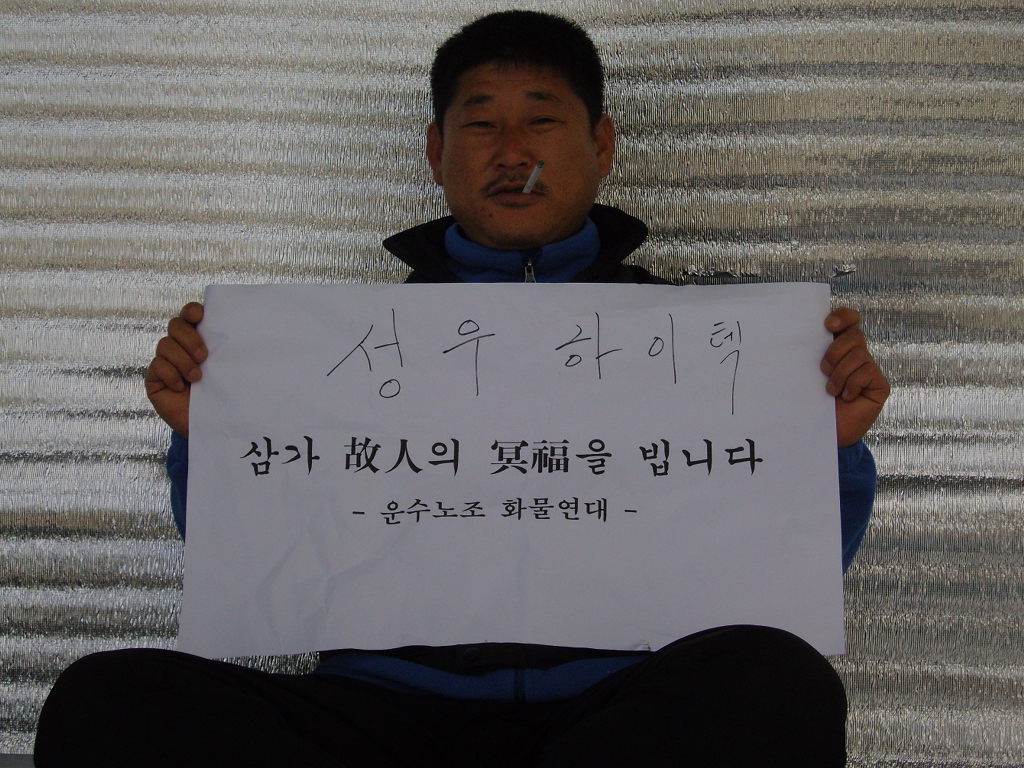 성우 하이텍
삼가 故人의 冥福을 빕니다
- 운수노조 화물연대 -